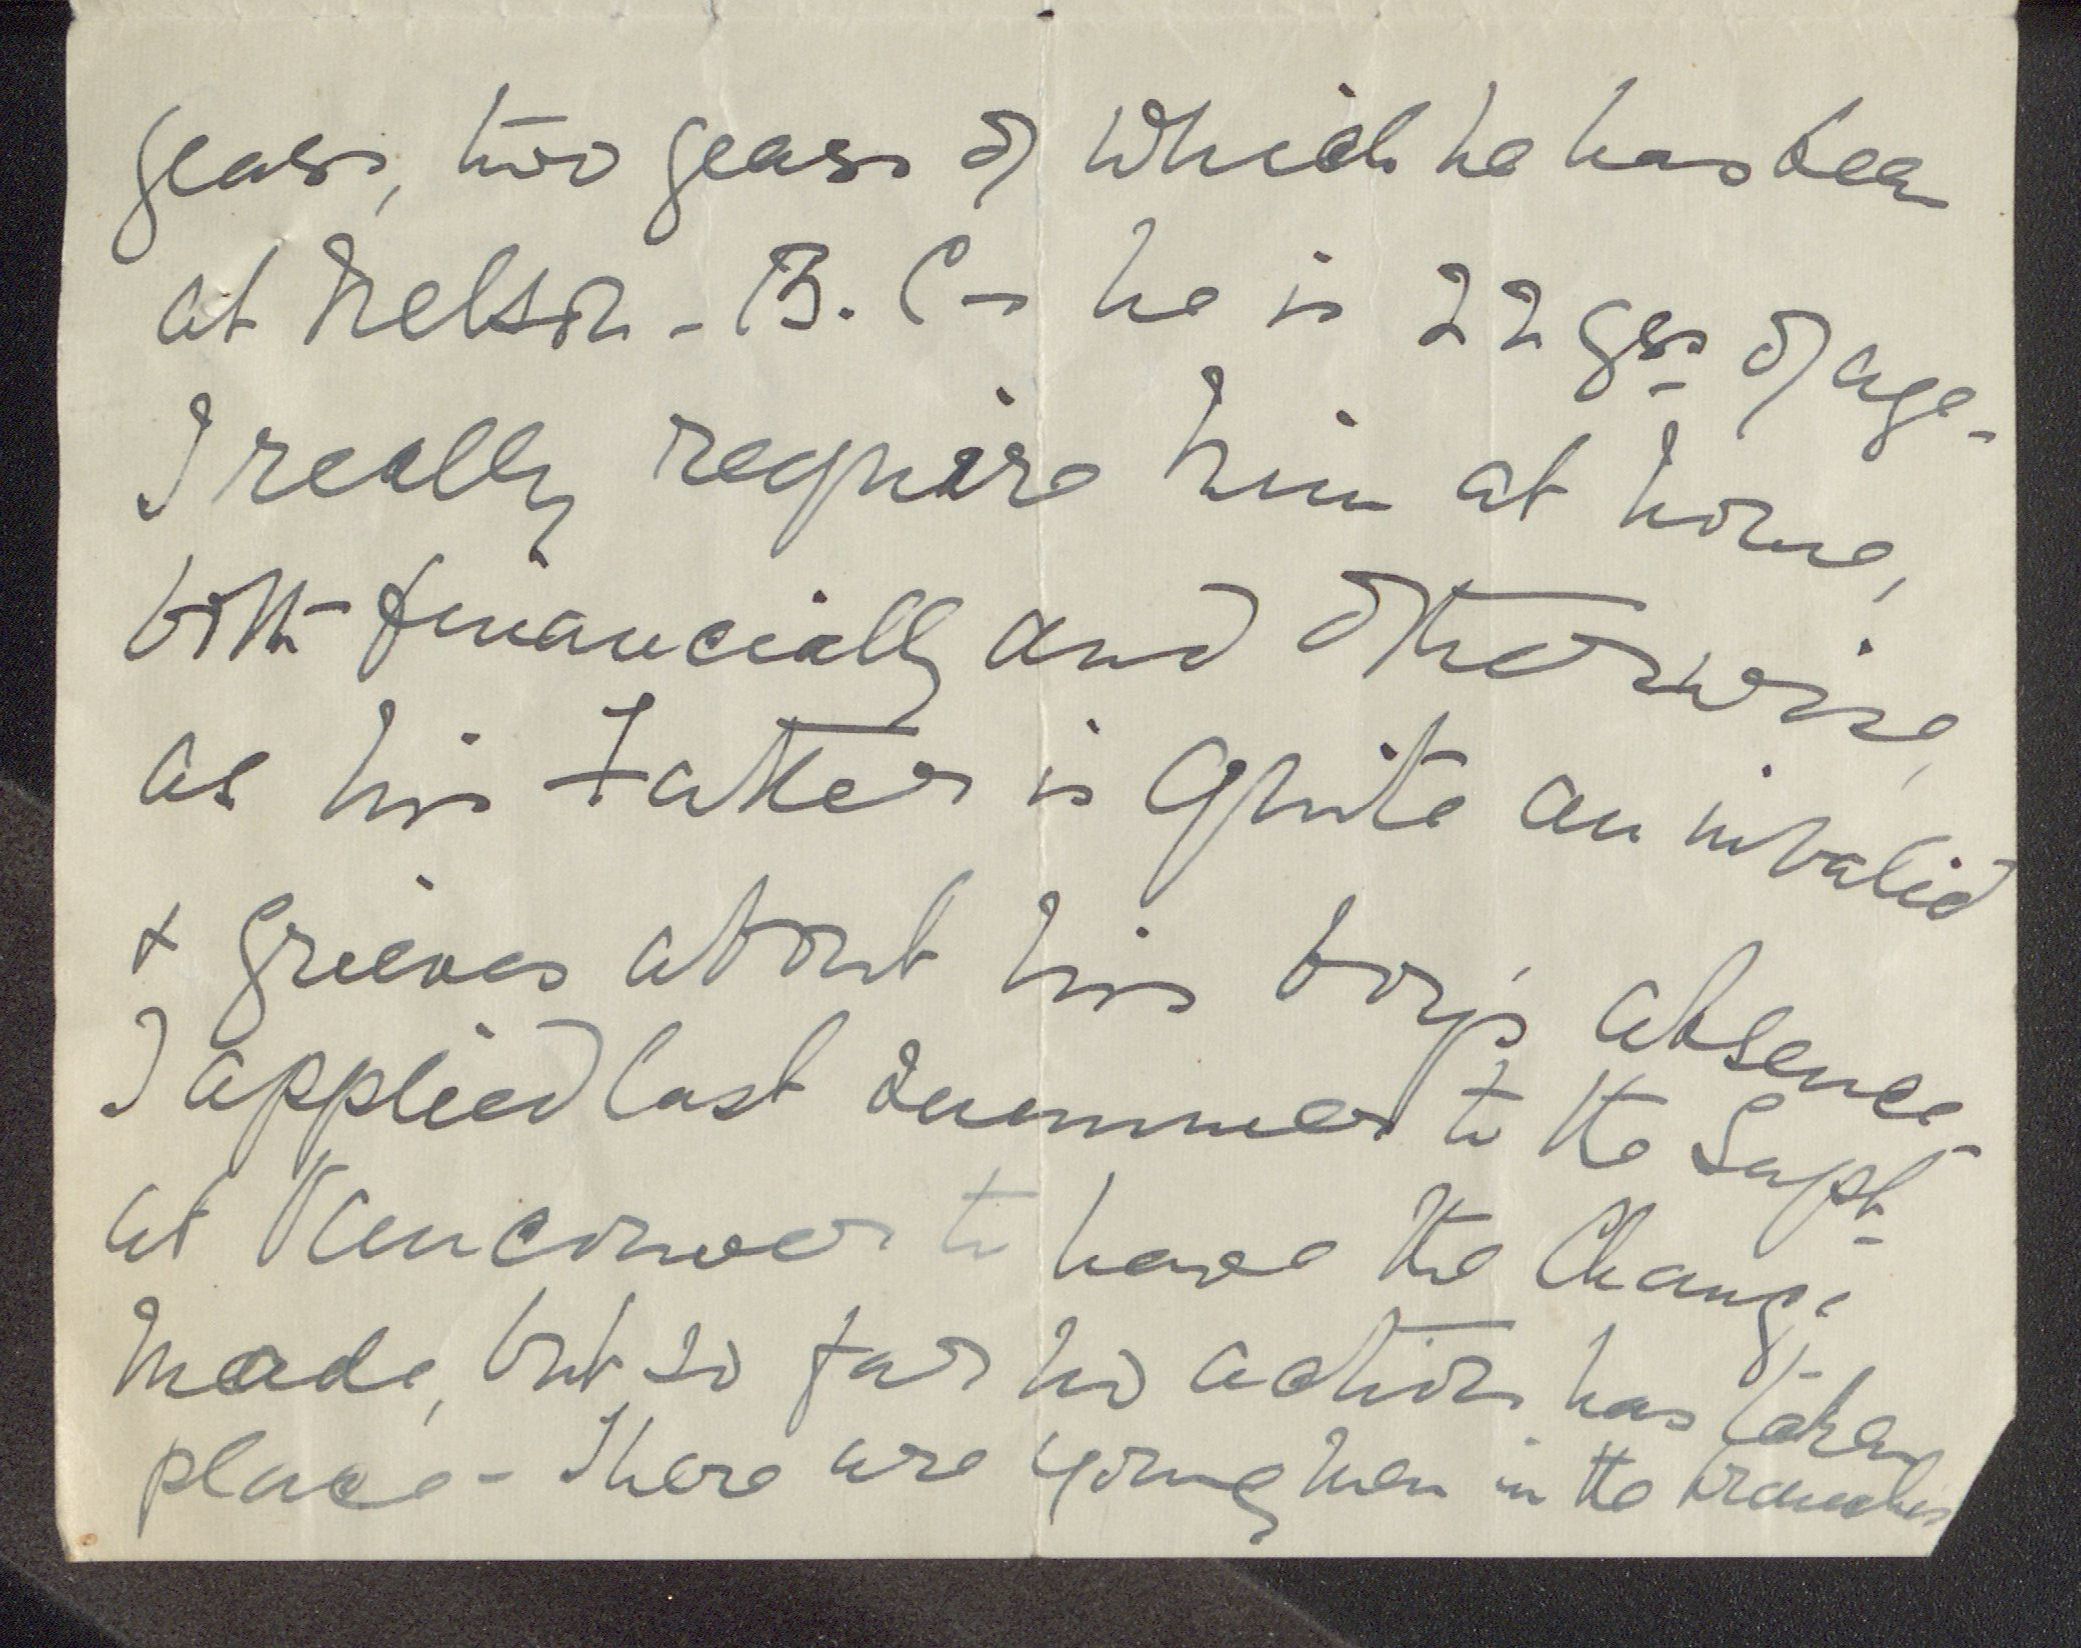 years, two years of which he has been
at Nelson - B. C - he is 22 yrs of age -
I really require him at home,
both financially and otherwise,
as his Father is quite an invalid
+ grieves about his boy's absence -
I applied last summer to the Supt -
at Vancouver to have the Change
made, but so far no action has taken
place - There are young men in the branches